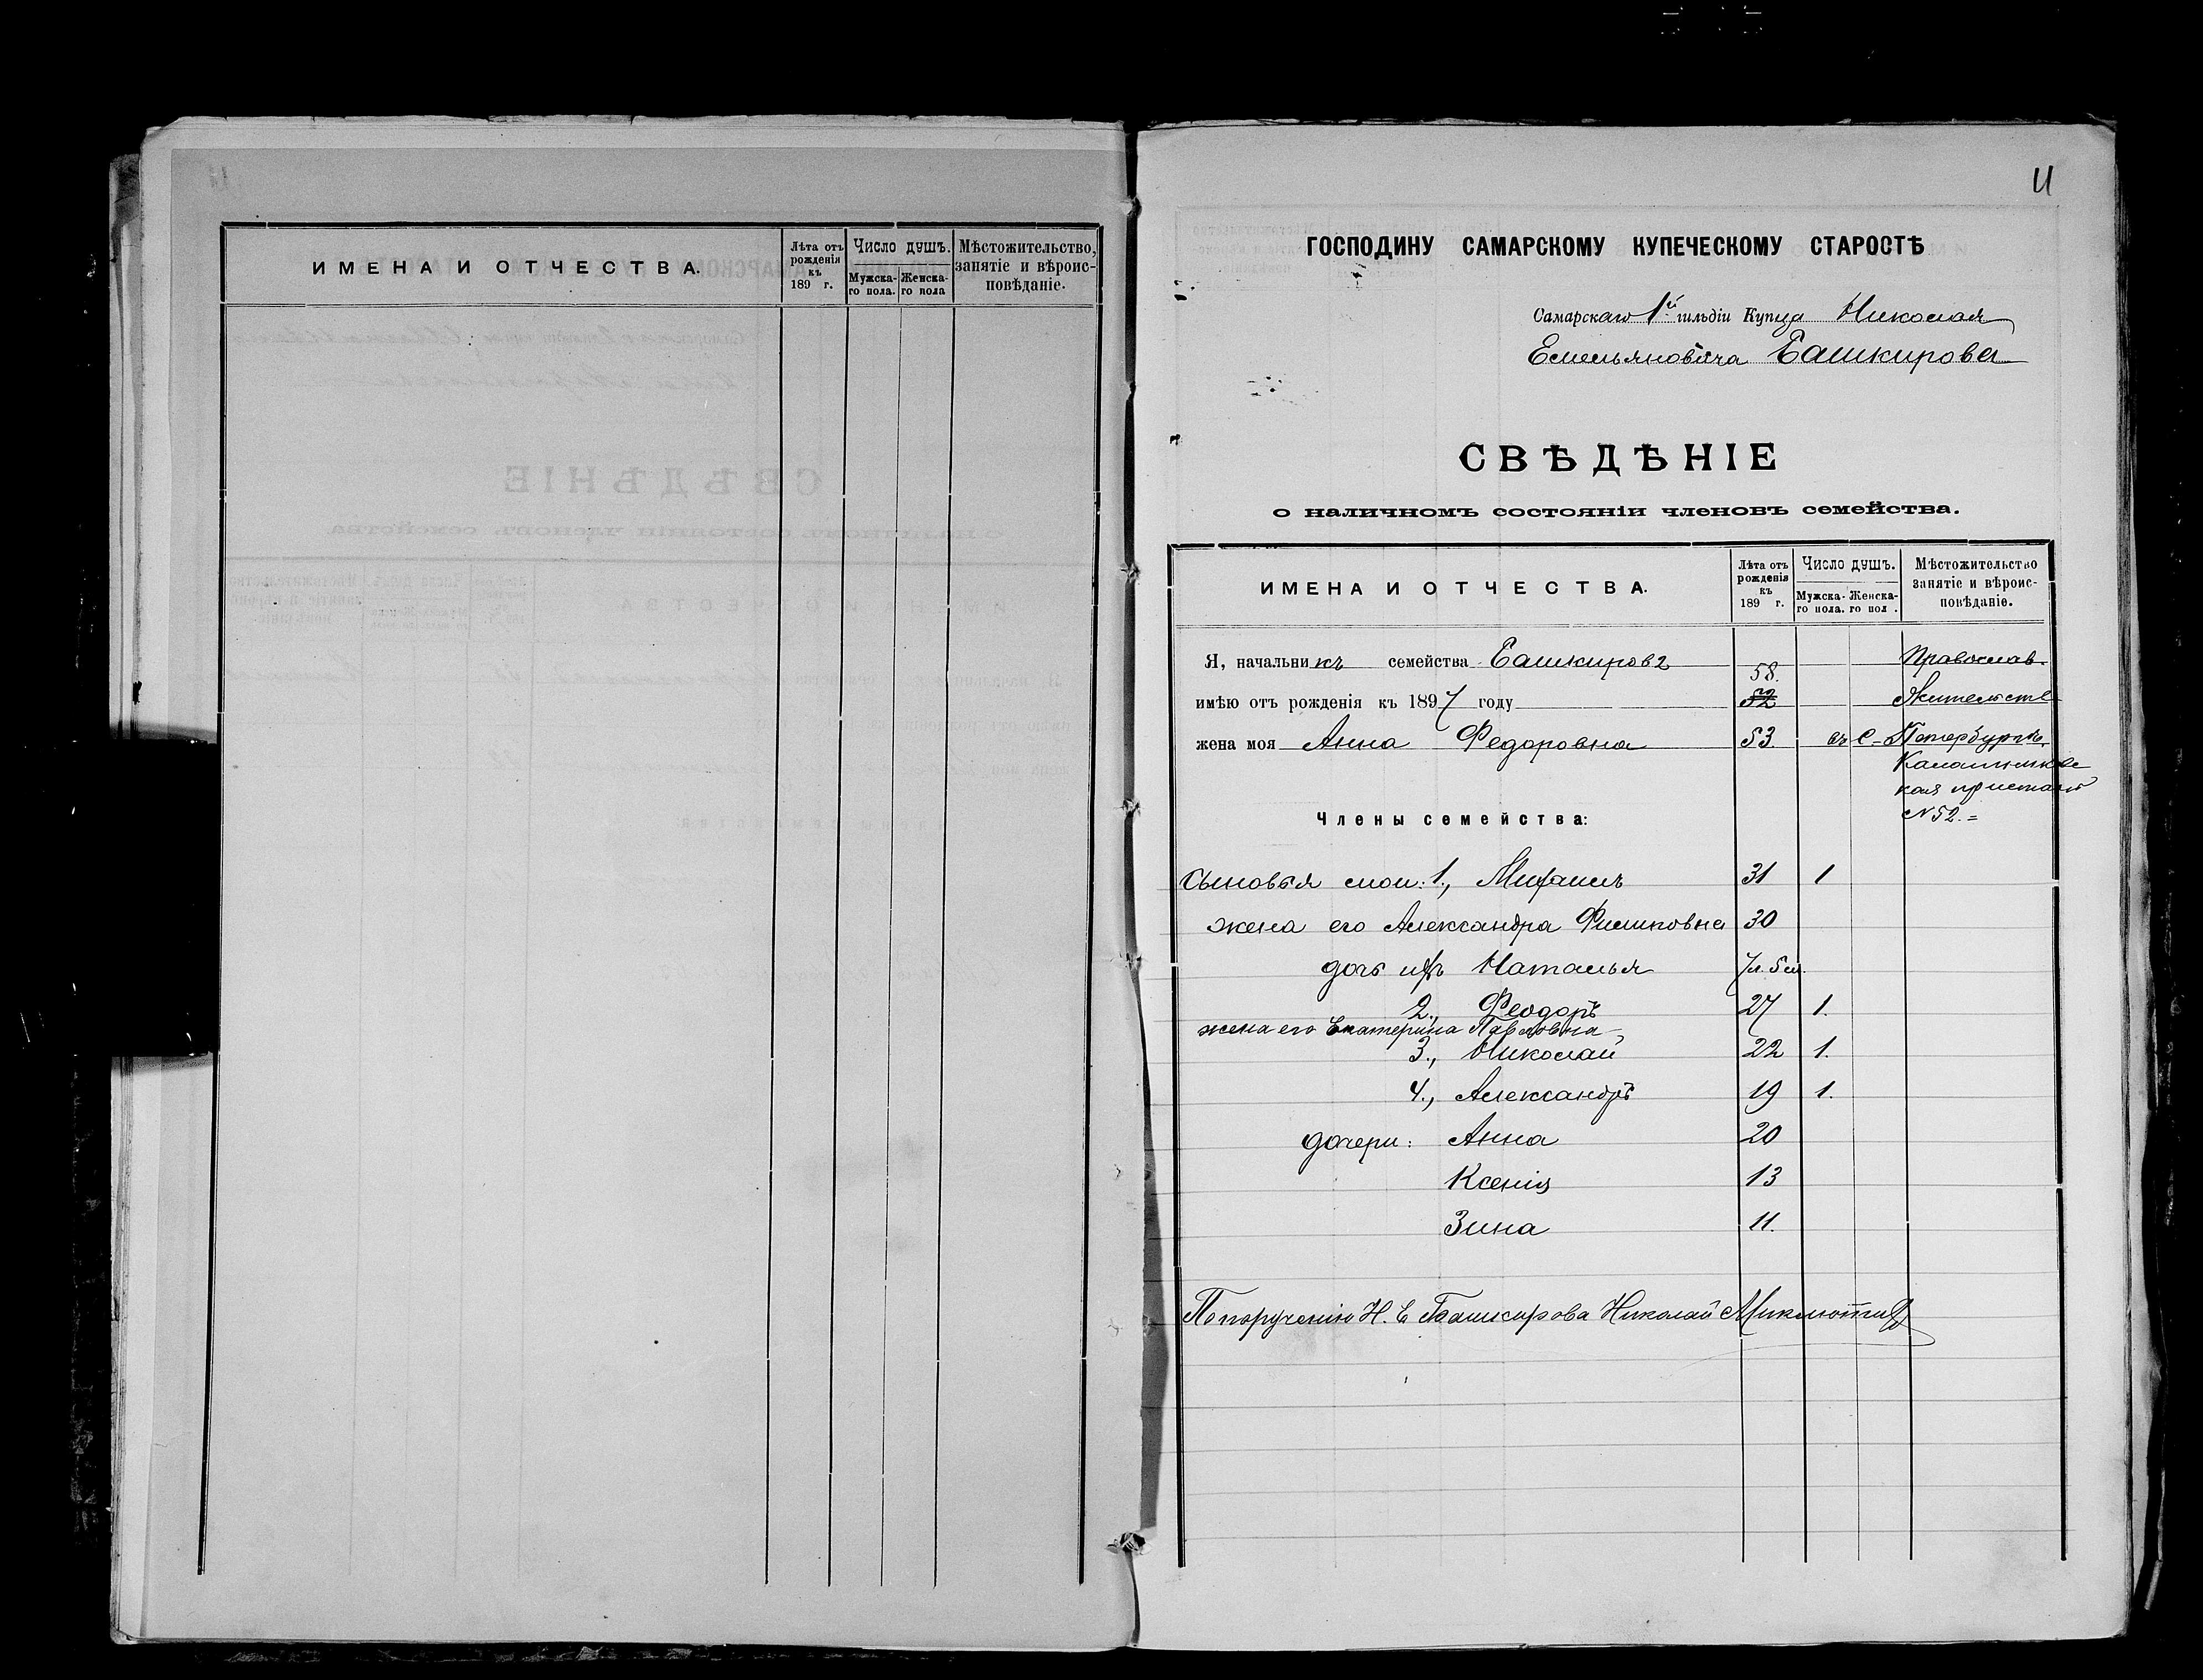 ИМЕНА И ОТЧЕСТВА.
Лѣта отъ рожденія къ 189 г.
Число душъ.
Мужска-го пола.
Женска-го пола
Мѣстожительство, занятіе и вѣроис-повѣданіе.
11
ГОСПОДИНУ САМАРСКОМУ КУПЕЧЕСКОМУ СТАРОСТѢ
Самарскаго 1й гильдіи Купца Николая
Емельяновича Башкирова
СВѢДѢНІЕ
о наличномъ состояніи членовъ семейства.
ИМЕНА И ОТЧЕСТВА.
Лѣта отъ рожденія къ 189 г.
Число душъ.
Мужска-го пола.
Женска-го пол .
Мѣстожительство занятіе и вѣроис-повѣданіе.
Я, начальникъ семейства Башкировъ 58. Православ.
имѣю отъ рожденія къ 1897 году 52 Жительств
жена моя Анна Федоровна 53. въ С-Петербургѣ.
Калашниковс
кая пристань
N 52. =
Члены семейства:
Сыновья мои: 1., Михаилъ 31 1
жена его Александра Филиповна 30
дочь ихъ Наталья 7л. 5м.
2., Феодоръ 27 1.
жена его Екатерина Павловна
3., Николай 22 1.
4., Александръ 19 1.
дочери: Анна 20
Ксенія 13
Зина 11.
По порученію Н. Е Башкирова Николай